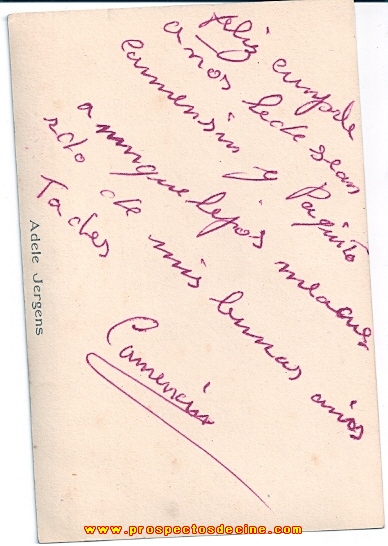 feliz cumple
años le desean
Carmensin y Paquito
aunque lejos meacue
rdo de mis buenas años
Tades
Carmencin
Adele Jergens
www.prospectosdecine.com